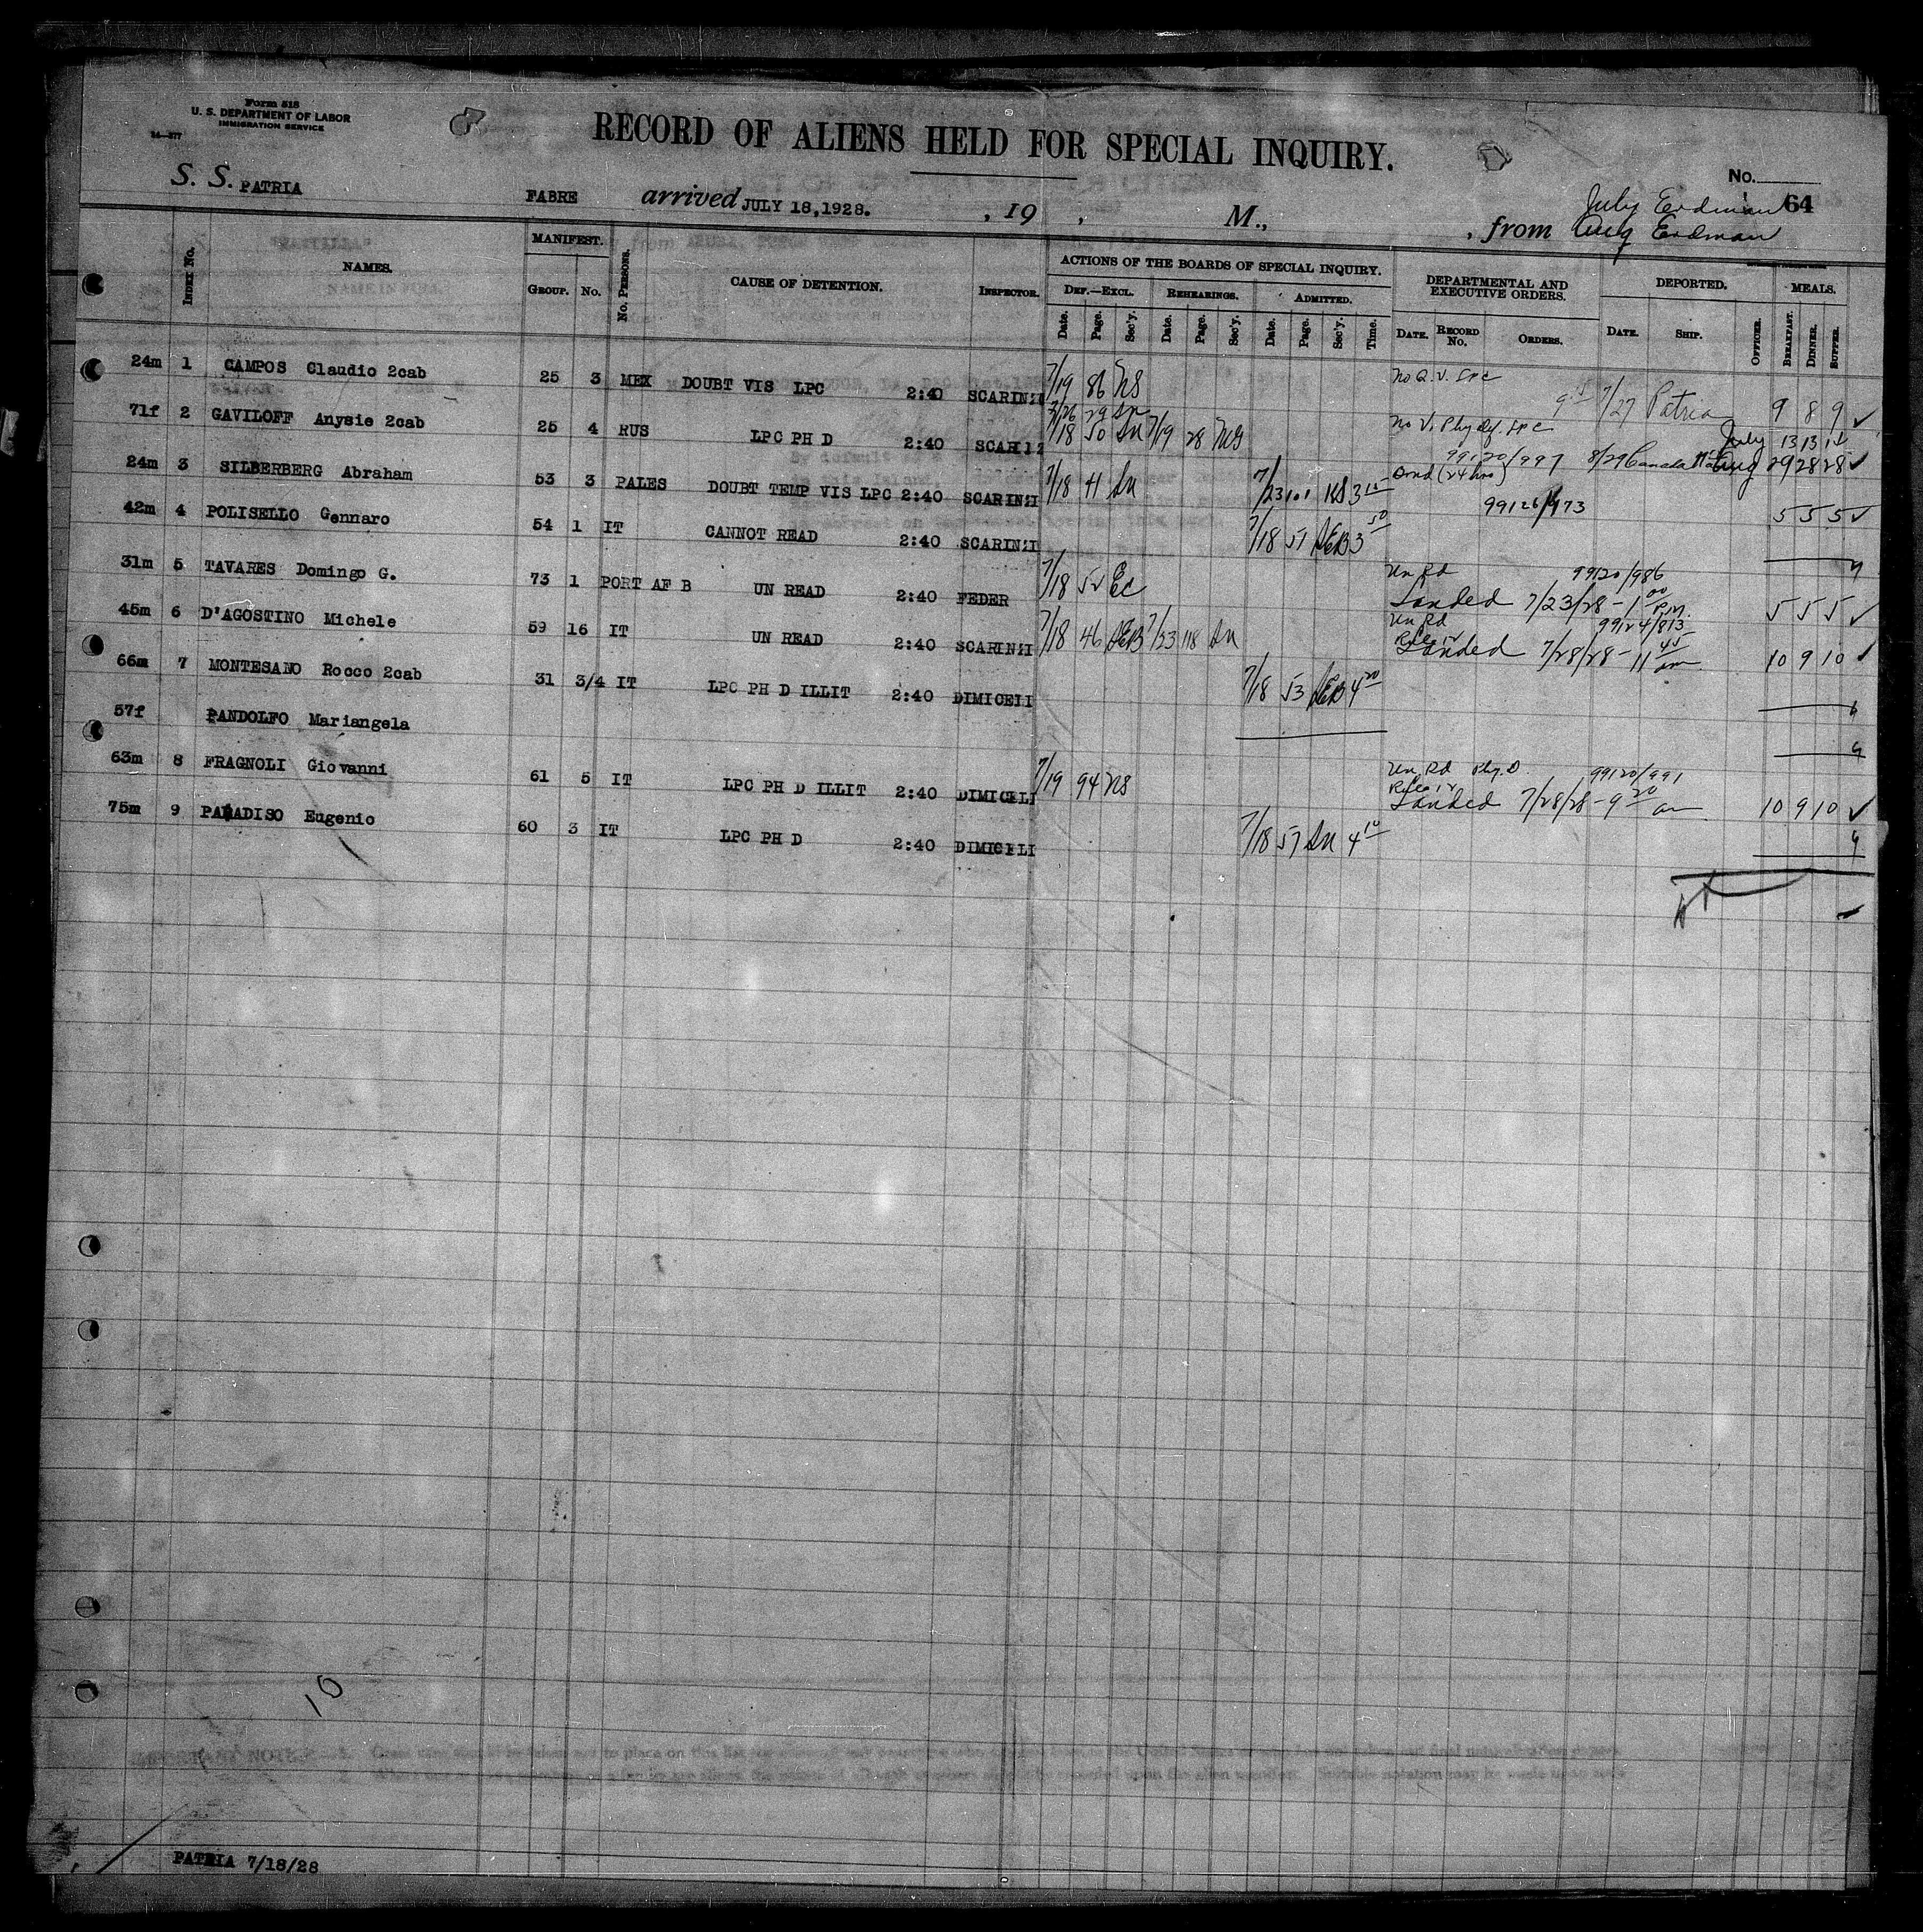 Form 518
U. S. DEPARTMENT OF LABOR
IMMIGRATION SERVICE
14—577
RECORD OF ALIENS HELD FOR SPECIAL INQUIRY.
No.
64
S. S. PATRIA FABRE arrived JULY 18,1928. , 19 , M., , from
July Erdman
Aug Erdman
INDEX No. NAMES. MANIFEST. GROUP. No. No. PERSONS. CAUSE OF DETENTION. INSPECTOR.
ACTIONS OF THE BOARDS OF SPECIAL INQUIRY.
DEF.—EXCL. REHEARINGS. ADMITTED.
Date. Page. Sec'y. Date. Page. Sec'y. Date. Page. Sec'y. Time.
DEPARTMENTAL AND EXECUTIVE ORDERS. DATE. RECORD No. ORDERS.
DEPORTED. DATE. SHIP. OFFICER.
MEALS. BREAKFAST. DINNER. SUPPER.
24m 1 CAMPOS Claudio 2cab 25 3 MEX DOUBT VIS LPC 2:40 SCARINZI 7/19 86 NS No Q.V. LPC 7/27 Patria 9 8 9 ✓
7/26 29
71f 2 GAVILOFF Anysie 2cab 25 4 RUS LPC PH D 2:40 7/18 50 7/19 28 No V. Phy def. LPC July 13 13
99120/997 8/29 Aug 29 28 28 ✓
24m 3 SILBERBERG Abraham 53 3 PALES DOUBT TEMP VIS LPC 2:40 SCARINZI 7/18 41 7/23 101 3 15 (24 hrs)
5 5 5 ✓
42m 4 POLISELLO Gennaro 54 1 IT CANNOT READ 2:40 SCARINZI 7/18 51 AEB 3 50
31m 5 TAVARES Domingo G. 73 1 PORT AF B UN READ 2:40 FEDER 7/18 52 EC Un Rd 99120/986
Landed 7/23/28 - 1 00 P.M. 5 5 5 ✓
45m 6 D'AGOSTINO Michele 59 16 IT UN READ 2:40 SCARINZI 7/18 46 AEB 7/23 118 Un Rd 99124/813
Landed 7/28/28 - 11 45 am 10 9 10 ✓
66m 7 MONTESANO Rocco 2cab 31 3/4 IT LPC PH D ILLIT 2:40 DIMICELI 7/18 53 AEB 4 20
57f PANDOLFO Mariangela
63m 8 FRAGNOLI Giovanni 61 5 IT LPC PH D ILLIT 2:40 DIMICELI 7/19 94 NS Un Rd Phy. D. 99120/991
Landed 7/28/28 - 9 20 am 10 9 10 ✓
75m 9 PARADISO Eugenio 60 3 IT LPC PH D 2:40 DIMICELI 7/18 57 4 10
10
PATRIA 7/18/28